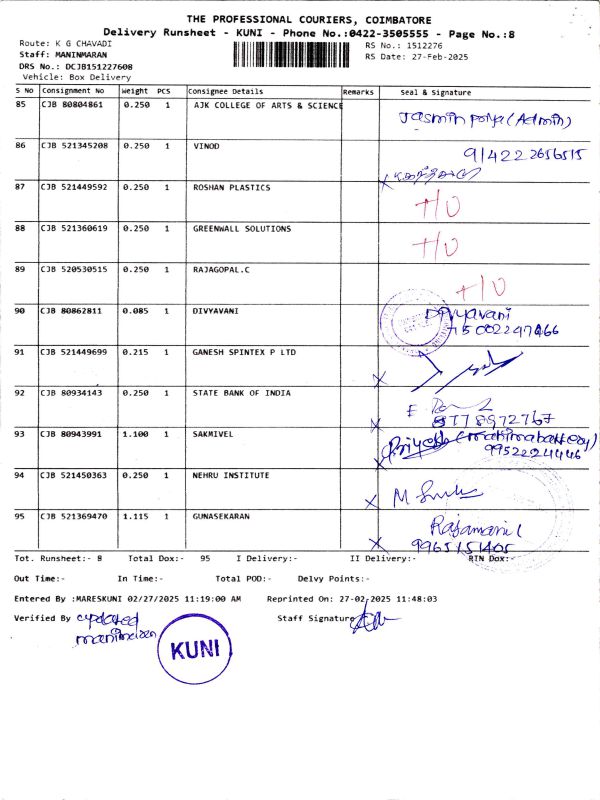 THE PROFESSIONAL COURIERS, COIMBATORE
Delivery Runsheet - KUNI - Phone No.:0422-3505555 - Page No.:8
Route: K G CHAVADI
RS No.: 1512276
Staff: MANINMARAN
RS Date: 27-Feb-2025
DRS No.: DCJB151227608
Vehicle: Box Delivery
S No Consignment No Weight PCS Consignee Details Remarks Seal & Signature
85 CJB 80804861 0.250 1 AJK COLLEGE OF ARTS & SCIENCE
Jasmin Priya (Admin)
86 CJB 521345208 0.250 1 VINOD
914222656515
87 CJB 521449592 0.250 1 ROSHAN PLASTICS
H/O
88 CJB 521360619 0.250 1 GREENWALL SOLUTIONS
H/O
89 CJB 520530515 0.250 1 RAJAGOPAL.C
H/O
90 CJB 80862811 0.085 1 DIVYAVANI
Divyavani
91 CJB 521449699 0.215 1 GANESH SPINTEX P LTD
92 CJB 80934143 0.250 1 STATE BANK OF INDIA
93 CJB 80943991 1.100 1 SAKMIVEL
9952224446
94 CJB 521450363 0.250 1 NEHRU INSTITUTE
95 CJB 521369470 1.115 1 GUNASEKARAN
Rajamani
9965151405
Tot. Runsheet:- 8 Total Dox:- 95 I Delivery:- II Delivery:- RTN Dox:-
Out Time:- In Time:- Total POD:- Delvy Points:-
Entered By :MARESKUNI 02/27/2025 11:19:00 AM Reprinted On: 27-02-2025 11:48:03
Verified By updated Staff Signature
manimaran
KUNI